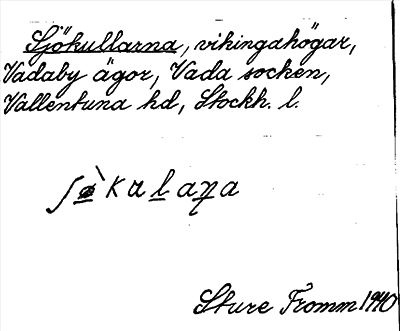 Sjökullarna, vikingahögar,
Vadaby ägor, Vada socken,
Vallentuna hd, Stockh. l.
Sture Fromm 1940